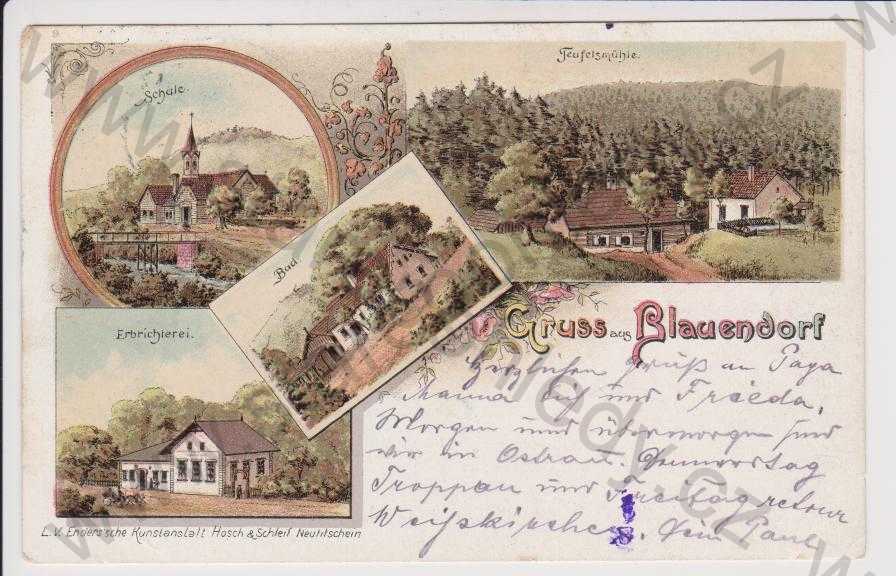 Schule.
Teufelsmühle.
Bad
Erbrichterei.
Gruss aus Blauendorf
Herzlichen Gruß an Papa
Mama dich und Frieda,
Morgen und übermorgen sind
wir in Ostrau. Donnerstag
Troppau und Freitag retour
Weißkirchen. Dein Paul
L. V. Enders'sche Kunstanstalt Hosch & Schleif Neutitschein